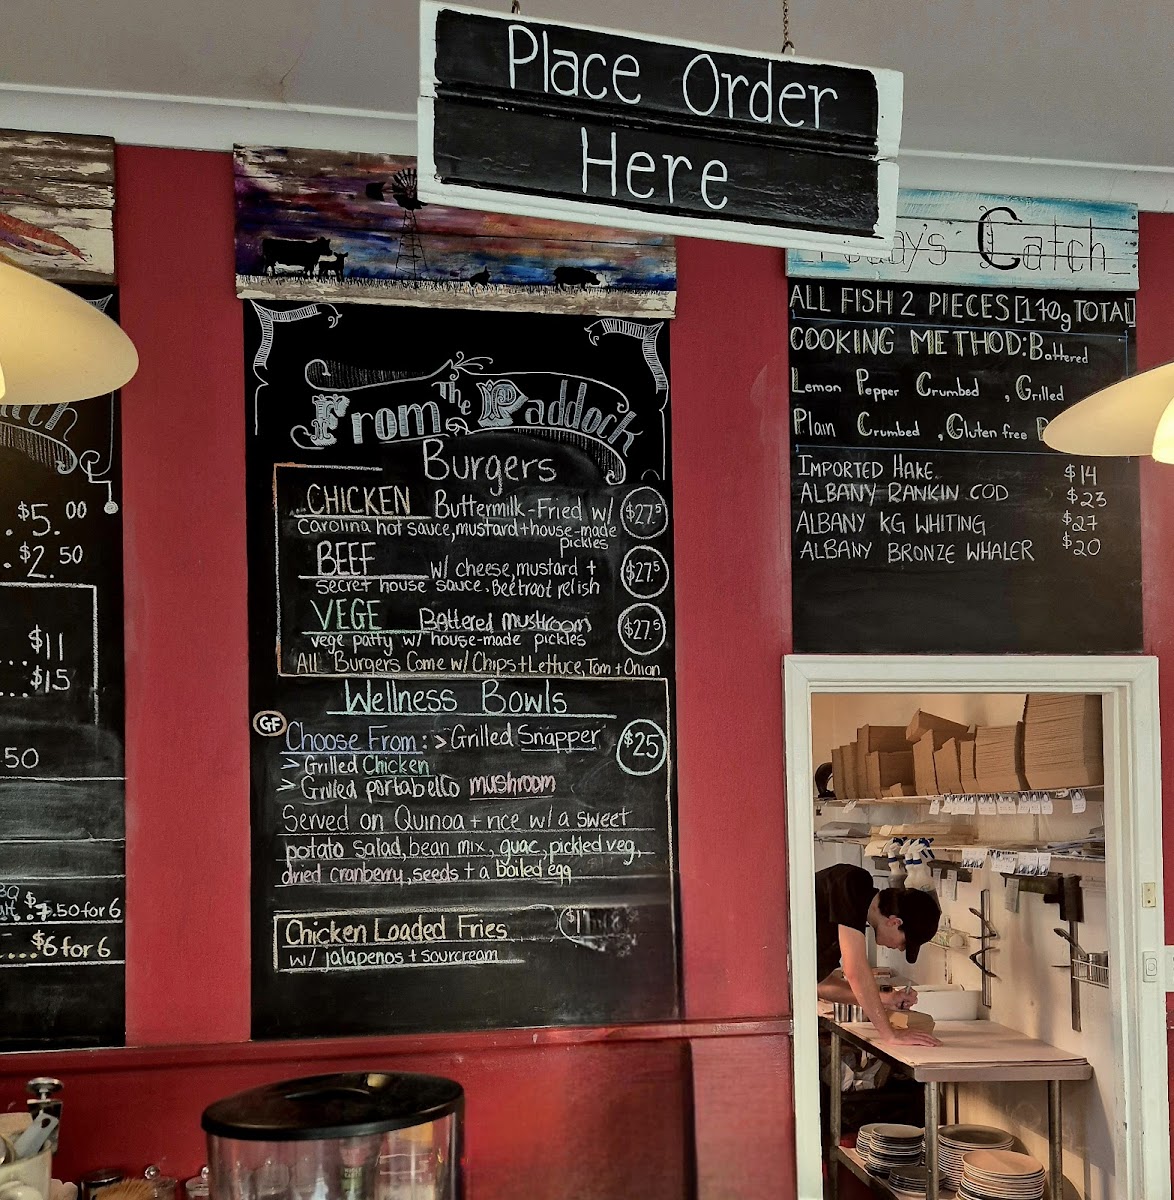 Place Order
Here
Today's Catch
ALL FISH 2 PIECES [170g TOTAL]
COOKING METHOD: Battered
Lemon Pepper Crumbed , Grilled
Plain Crumbed , Gluten free
IMPORTED HAKE $14
ALBANY RANKIN COD $23
ALBANY KG WHITING $27
ALBANY BRONZE WHALER $20
From The Paddock
Burgers
...CHICKEN Buttermilk-Fried w/ $27.5
Carolina hot sauce, mustard + house-made
pickles
BEEF w/ cheese, mustard + $27.5
secret house sauce, Beetroot relish
VEGE Battered mushroom $27.5
vege patty w/ house-made pickles
All Burgers Come w/ Chips + Lettuce, Tom + Onion
Wellness Bowls
GF
Choose From: > Grilled Snapper $25
> Grilled Chicken
> Grilled portabello mushroom
Served on Quinoa + rice w/ a sweet
potato salad, bean mix, guac, pickled veg,
dried cranberry, seeds + a boiled egg
Chicken Loaded Fries
w/ jalapenos + sourcream
.$5.00
.$2.50
$11
...$15
50
$7.50 for 6
...$6 for 6